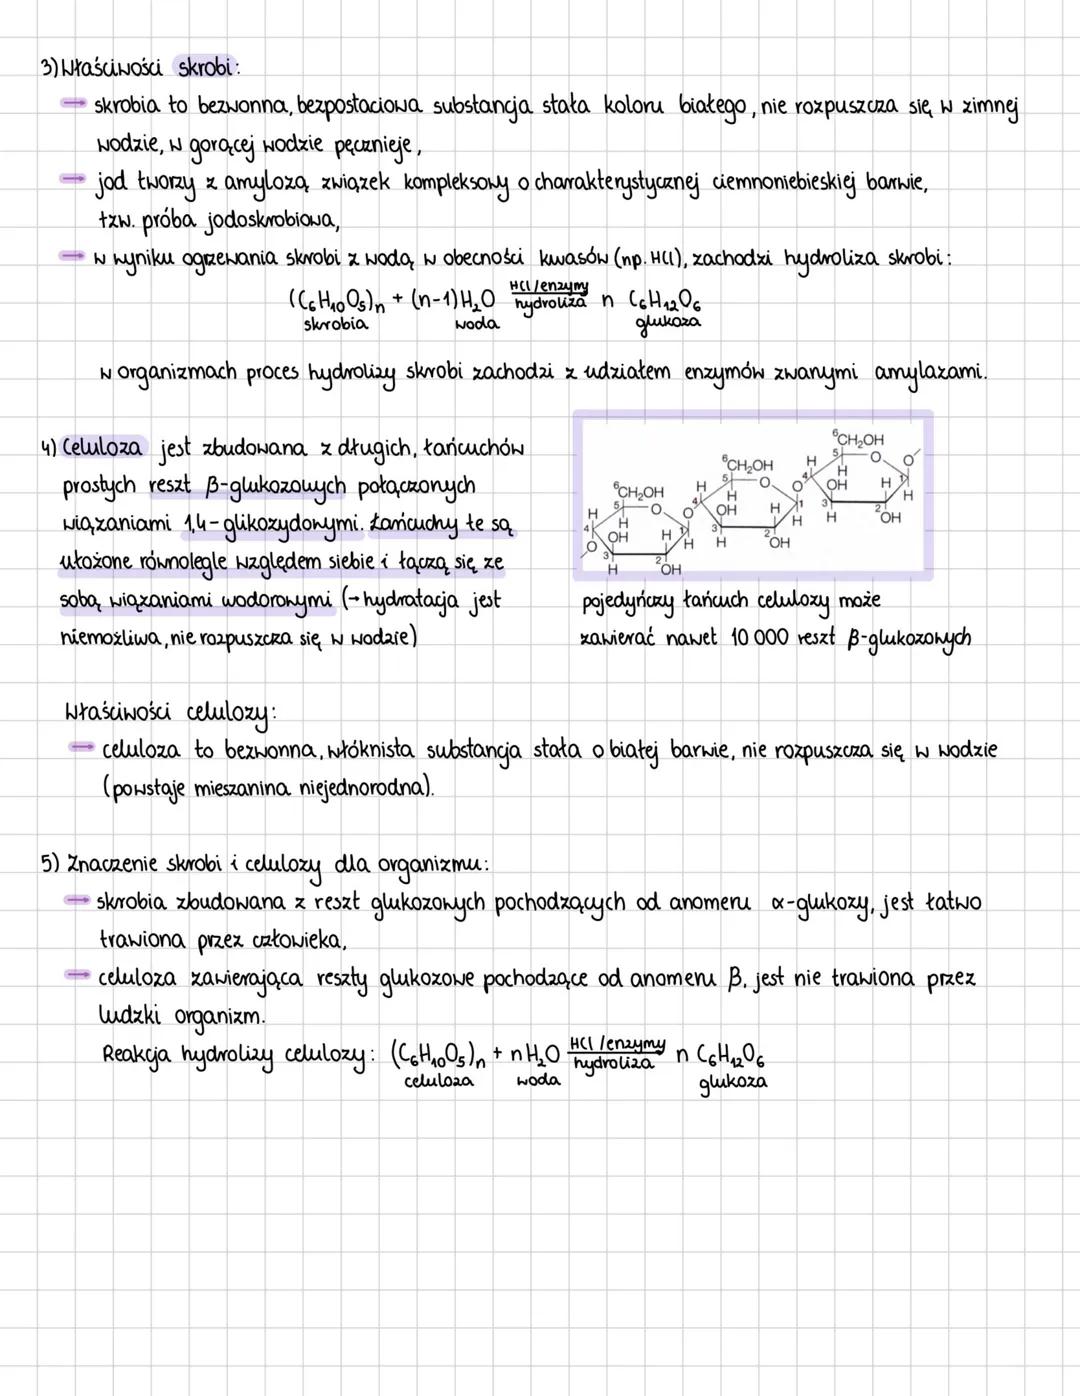 3) Właściwości skrobi:
→ skrobia to bezwonna, bezpostaciowa substancja stała koloru białego, nie rozpuszcza się w zimnej
wodzie, w gorącej wodzie pęcznieje,
→ jod tworzy z amylozą związek kompleksowy o charakterystycznej ciemnoniebieskiej barwie,
tzw. próba jodoskrobiowa,
→ w wyniku ogrzewania skrobi z wodą w obecności kwasów (np. HCl), zachodzi hydroliza skrobi:
(C₆H₁₀O₅)n + (n-1)H₂O HCl/enzymy hydroliza n C₆H₁₂O₆
skrobia woda glukoza
w organizmach proces hydrolizy skrobi zachodzi z udziałem enzymów zwanymi amylazami.
4) Celuloza jest zbudowana z długich, łańcuchów
prostych reszt β-glukozowych połączonych
wiązaniami 1,4-glikozydowymi. Łańcuchy te są
ułożone równolegle względem siebie i łączą się ze
sobą wiązaniami wodorowymi (→ hydratacja jest
niemożliwa, nie rozpuszcza się w wodzie)
⁶CH₂OH 5 O H 4 H OH H 1 O 3 2 H OH H
⁶CH₂OH 5 O H 4 H OH H 1 O 3 2 H OH H
⁶CH₂OH 5 O H 4 H OH H 1 O 3 2 H OH H O
pojedyńczy łańcuch celulozy może
zawierać nawet 10 000 reszt β-glukozowych
Właściwości celulozy:
→ celuloza to bezwonna, włóknista substancja stała o białej barwie, nie rozpuszcza się w wodzie
(powstaje mieszanina niejednorodna).
5) Znaczenie skrobi i celulozy dla organizmu:
→ skrobia zbudowana z reszt glukozowych pochodzących od anomeru α-glukozy, jest łatwo
trawiona przez człowieka,
→ celuloza zawierająca reszty glukozowe pochodzące od anomeru β, jest nie trawiona przez
ludzki organizm.
Reakcja hydrolizy celulozy: (C₆H₁₀O₅)n + nH₂O HCl/enzymy hydroliza n C₆H₁₂O₆
celuloza woda glukoza